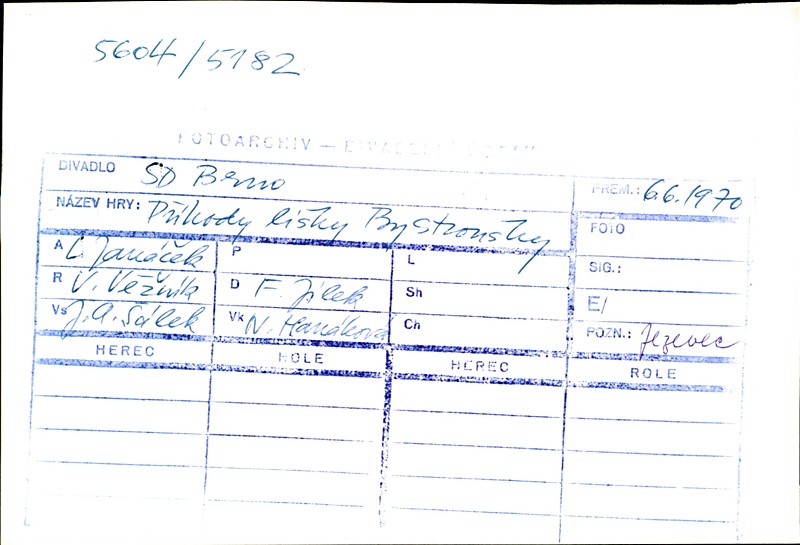 5604/5182
FOTOARCHIV — DIVADELNÍ ÚSTAV
DIVADLO SD Brno PREM.: 6.6.1970
NÁZEV HRY: Příhody lišky Bystroušky FOTO
A L. Janáček P L SIG.:
R V. Věžník D F. Jílek Sh E/
Vs J.A. Šálek Vk N. Hanáková Ch POZN.: Jezevec
HEREC ROLE HEREC ROLE